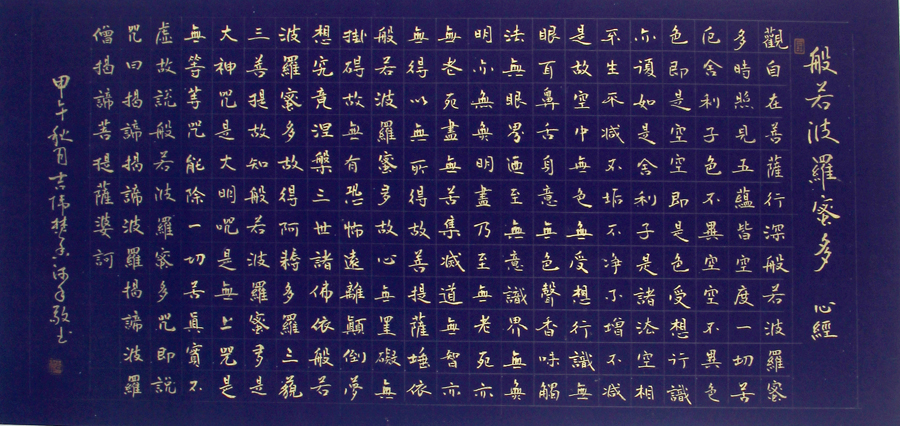 般若波羅蜜多 心經
觀自在菩薩行深般若波羅蜜
多時照見五蘊皆空度一切苦
厄舍利子色不異空空不異色
色即是空空即是色受想行識
亦復如是舍利子是諸法空相
不生不滅不垢不淨不增不減
是故空中無色無受想行識無
眼耳鼻舌身意無色聲香味觸
法無眼界迺至無意識界無無
明亦無無明盡乃至無老死亦
無老死盡無苦集滅道無智亦
無得以無所得故菩提薩埵依
般若波羅蜜多故心無罣礙無
掛碍故無有恐怖遠離顛倒夢
想究竟涅槃三世諸佛依般若
波羅蜜多故得阿耨多羅三藐
三菩提故知般若波羅蜜多是
大神咒是大明呪是無上咒是
無等等咒能除一切苦真實不
虛故説般若波羅蜜多咒即説
咒曰揭諦揭諦波羅揭諦波羅
僧揭諦菩提薩婆訶
甲午秋月吉偉焚香沐手敬书